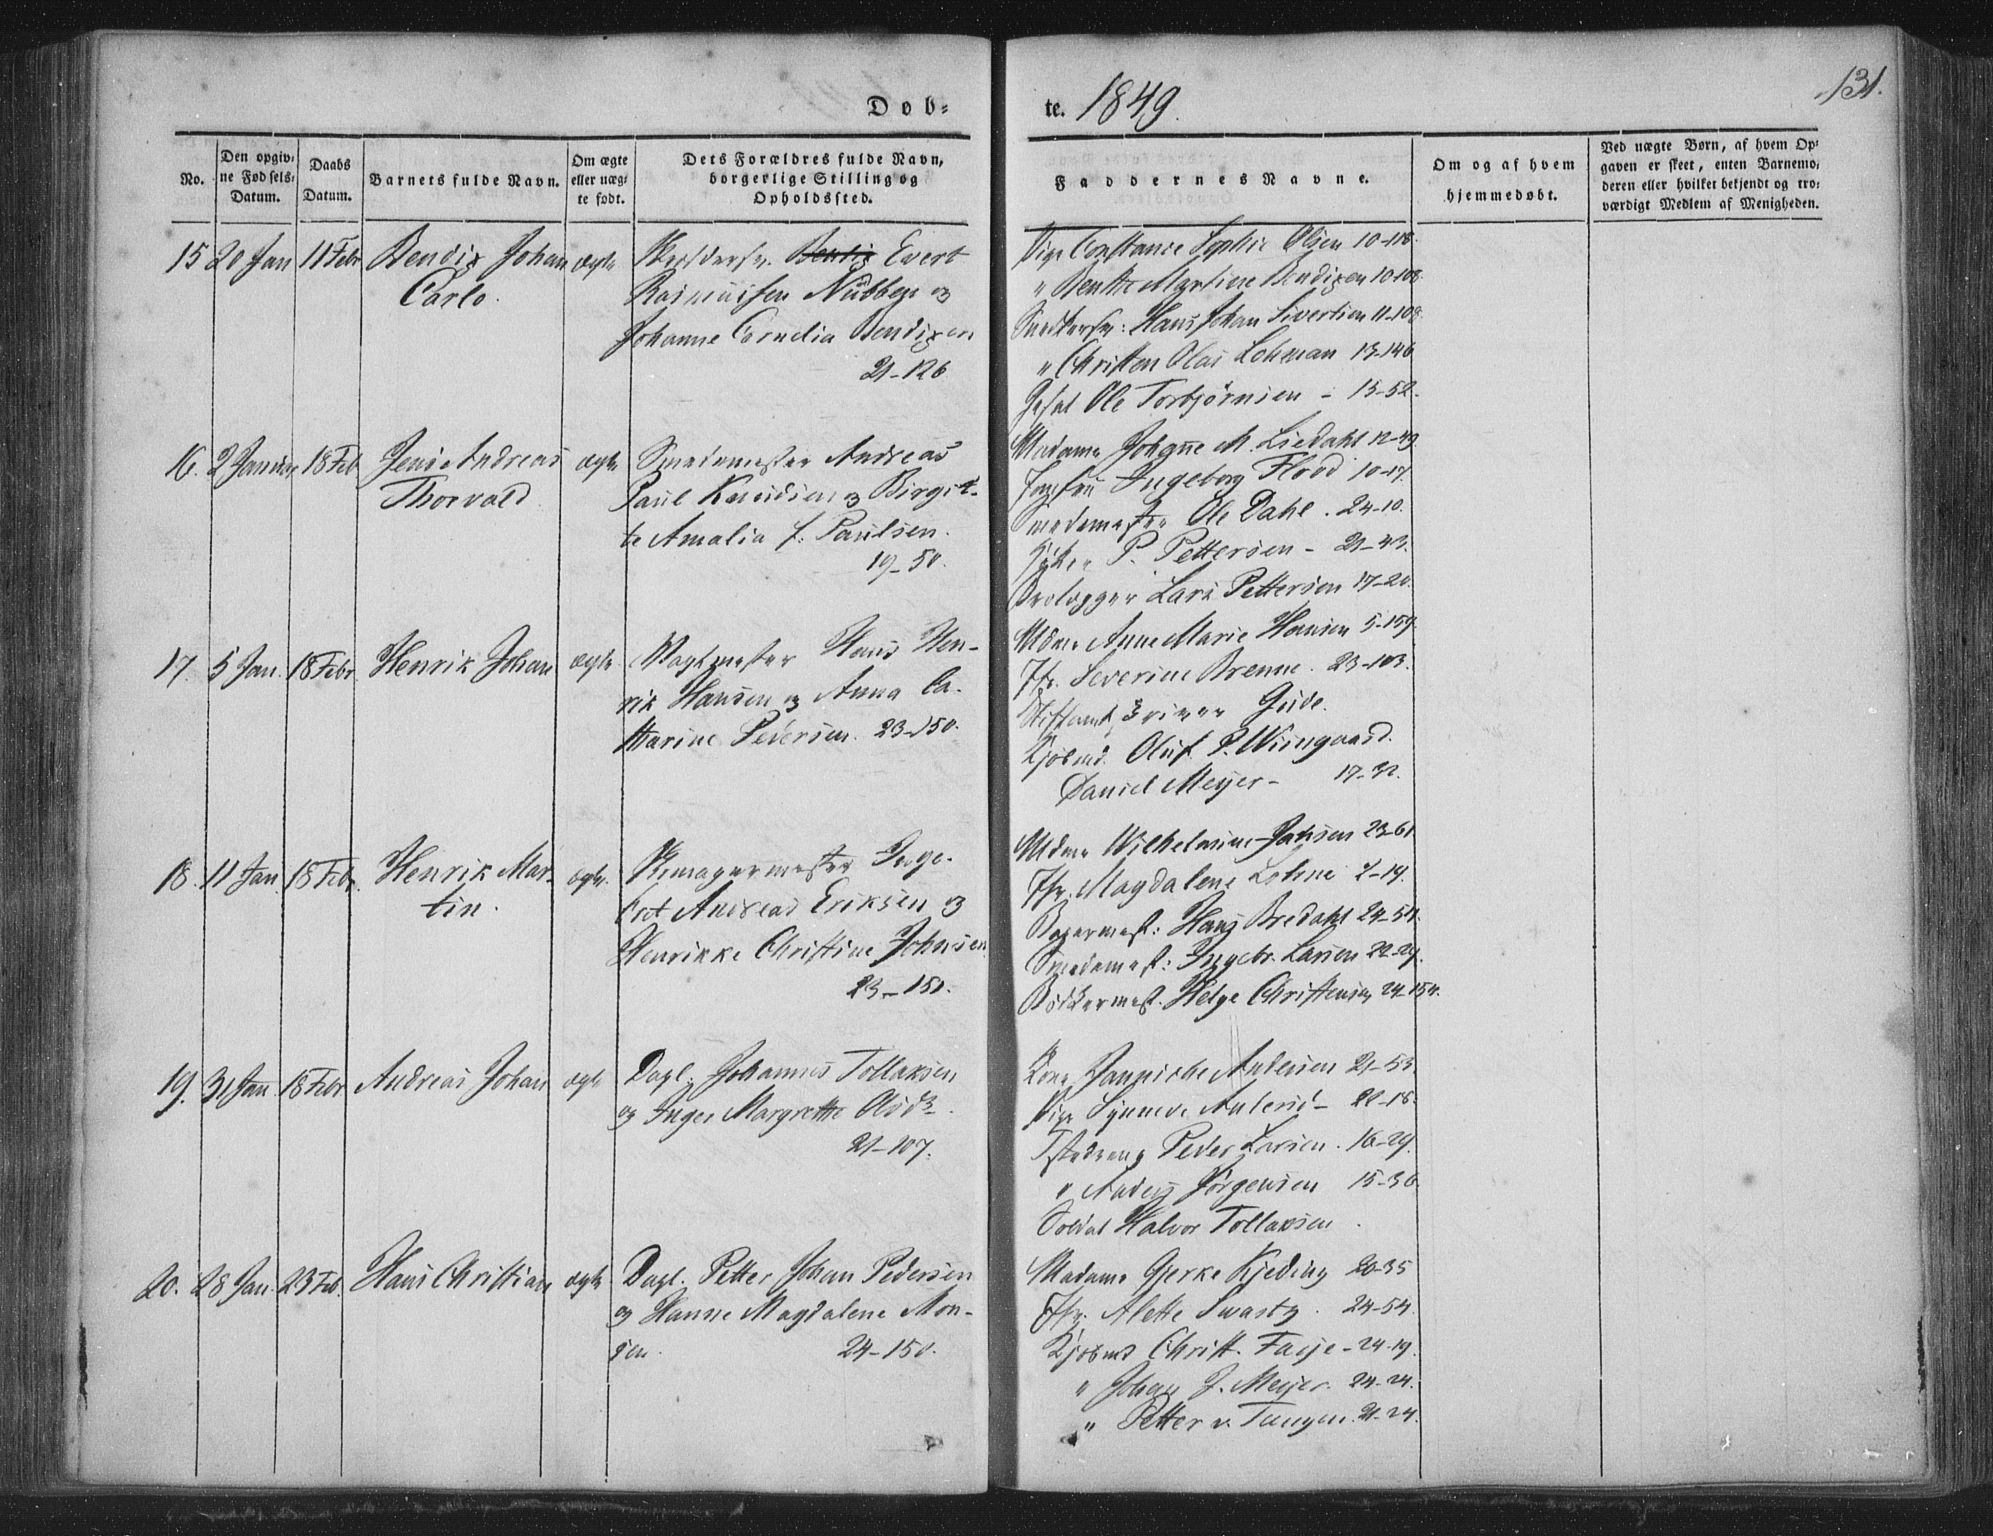 Døb=
te. 1849.
131.
No.
Den opgiv=
ne Fødsels=
Datum.
Daabs
Datum.
Barnets fulde Navn.
Om ægte
eller uæg=
te født.
Dets Forældres fulde Navn,
borgerlige Stilling og
Opholdssted.
Faddernes Navne.
Om og af hvem
hjemmedøbt.
Ved uægte Børn, af hvem Op=
gaven er skeet, enten Barnemo=
deren eller hvilket bekjendt og tro=
værdigt Medlem af Menigheden.
15 20 Jan 11 Febr Bendix Johan ægte
Carlo.
Evert
Rasmussen Nübbe og
Johanne Cornelia Bendixen
21-126
Pige Constance Sophie Olsen 10-118.
" Benthe Martine Bendixen 10-108
Hans Johan Sivertsen 11-108
" Christen Olai Lehman 13-146
Ole Torbjørnsen - 15-52.
16. 2 Januar 18 Feb Jens Andreas ægte
Thorvald
Smedemester Andreas
Paul Knudsen og Birgit-
te Amalia f. Paulsen.
19-50.
Madame Johanne M. Liedahl 12-49
Jomfru Ingeborg Flood 10-17.
Smedemester Ole Dahl. 24-10.
P. Pettersen - 21-43.
Lars Pettersen 17-20.
17. 5 Jan. 18 Febr Henrik Johan ægte
Vagtmester Hans Hen-
rik Hansen og Anna Ca-
tharine Pedersen. 23-150.
Mdme Anne Marie Hansen 5-159.
Jfr. Severine Brenne. 23-103.
Gude.
Kjøbmd. Oluf P. Wiingaard.
Daniel Meyer - 17-32.
18. 11 Jan 18 Febr. Henrik Mar- ægte.
tin.
Inge-
bret Andreas Eriksen og
Henrikke Christine Johnsen
23-151.
Mdme Wilhelmine Jahnsen 23-61
Jfr. Magdalene Lehne 2-19.
Bagermest: Hans Bredahl 24-51.
Smedemest: Ingebr. Larsen 22-29.
Bødkermest. Helge Christensen 24-154.
19. 31 Jan 18 Febr Andreas Johan ægte
Dagl. Johannes Tollaksen
og Inger Margrethe Olsdr.
21-107.
Kone Jannicke Andersen 21-53
Pige Synneve Andersd - 22-18.
Peder Larsen. 16-29.
" Anders Jørgensen 15-36
Soldat Halvor Tollaksen.
20. 28 Jan. 23 Feb. Hans Christian ægte
Dagl. Petter Johan Pedersen
og Hanne Magdalene Mon-
sen. 24-150.
Madame Gjerke Kjeding 20-35
Jfr. Alette Swartz. 24-54.
Kjøbmd Christ. Fasje - 24-19.
" Johan J. Meyer. 24-24.
" Petter v. Tangen. 21-24.